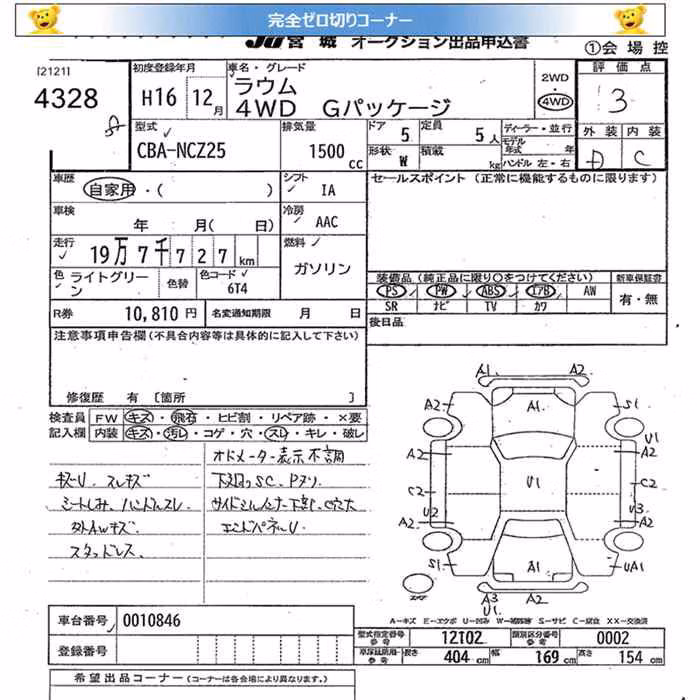 完全ゼロ切りコーナー
JU 宮城 オークション出品申込書
①会場控
[2121]
4328
初度登録年月
H16 12月
車名・グレード
ラウム
4WD Gパッケージ
2WD
4WD
評価点
3
外装 内装
D C
型式
CBA-NCZ25
排気量
1500 cc
ドア 5
定員 5人
形状 W
積載 kg
ディーラー・並行
モデル年式 年
ハンドル 左・右
車歴
自家用・( )
シフト
IA
セールスポイント (正常に機能するものに限ります)
車検
年 月( 日)
冷房
AAC
走行
19万7千727km
燃料
ガソリン
色
ライトグリーン
色替
色コード
6T4
装備品(純正品に限り○をつけてください)
新車保証書
PS PW ABS エアB AW
有・無
SR ナビ TV カワ
R券 10,810円
名変通知期限 月 日
後日品
注意事項申告欄(不具合内容等は具体的に記入して下さい)
修復歴 有 [箇所 ]
検査員 FW キズ・飛石・ヒビ割・リペア跡・×要
記入欄 内装 キズ・汚レ・コゲ・穴・スレ・キレ・破レ
オドメーター表示不調
キズU. スレキズ
下廻りSC、Pヌリ
シートしみ、ハンドルスレ
エンドパネルU
スタッドレス
A1. A2
A2 A1. S1
U1
A2 A2
C2 U1 C2
U2 U3
A2 A2
S1 A1 UA1
A3 A2
U1.
A-キズ E-エクボ U-凹み W-補修跡 S-サビ C-腐食 XX-交換済
車台番号 0010846
登録番号
型式指定番号 参考 12T02
類別区分番号 参考 0002
長さ 404cm 幅 169cm 高さ 154cm
希望出品コーナー(コーナーは各会場により異なります。)